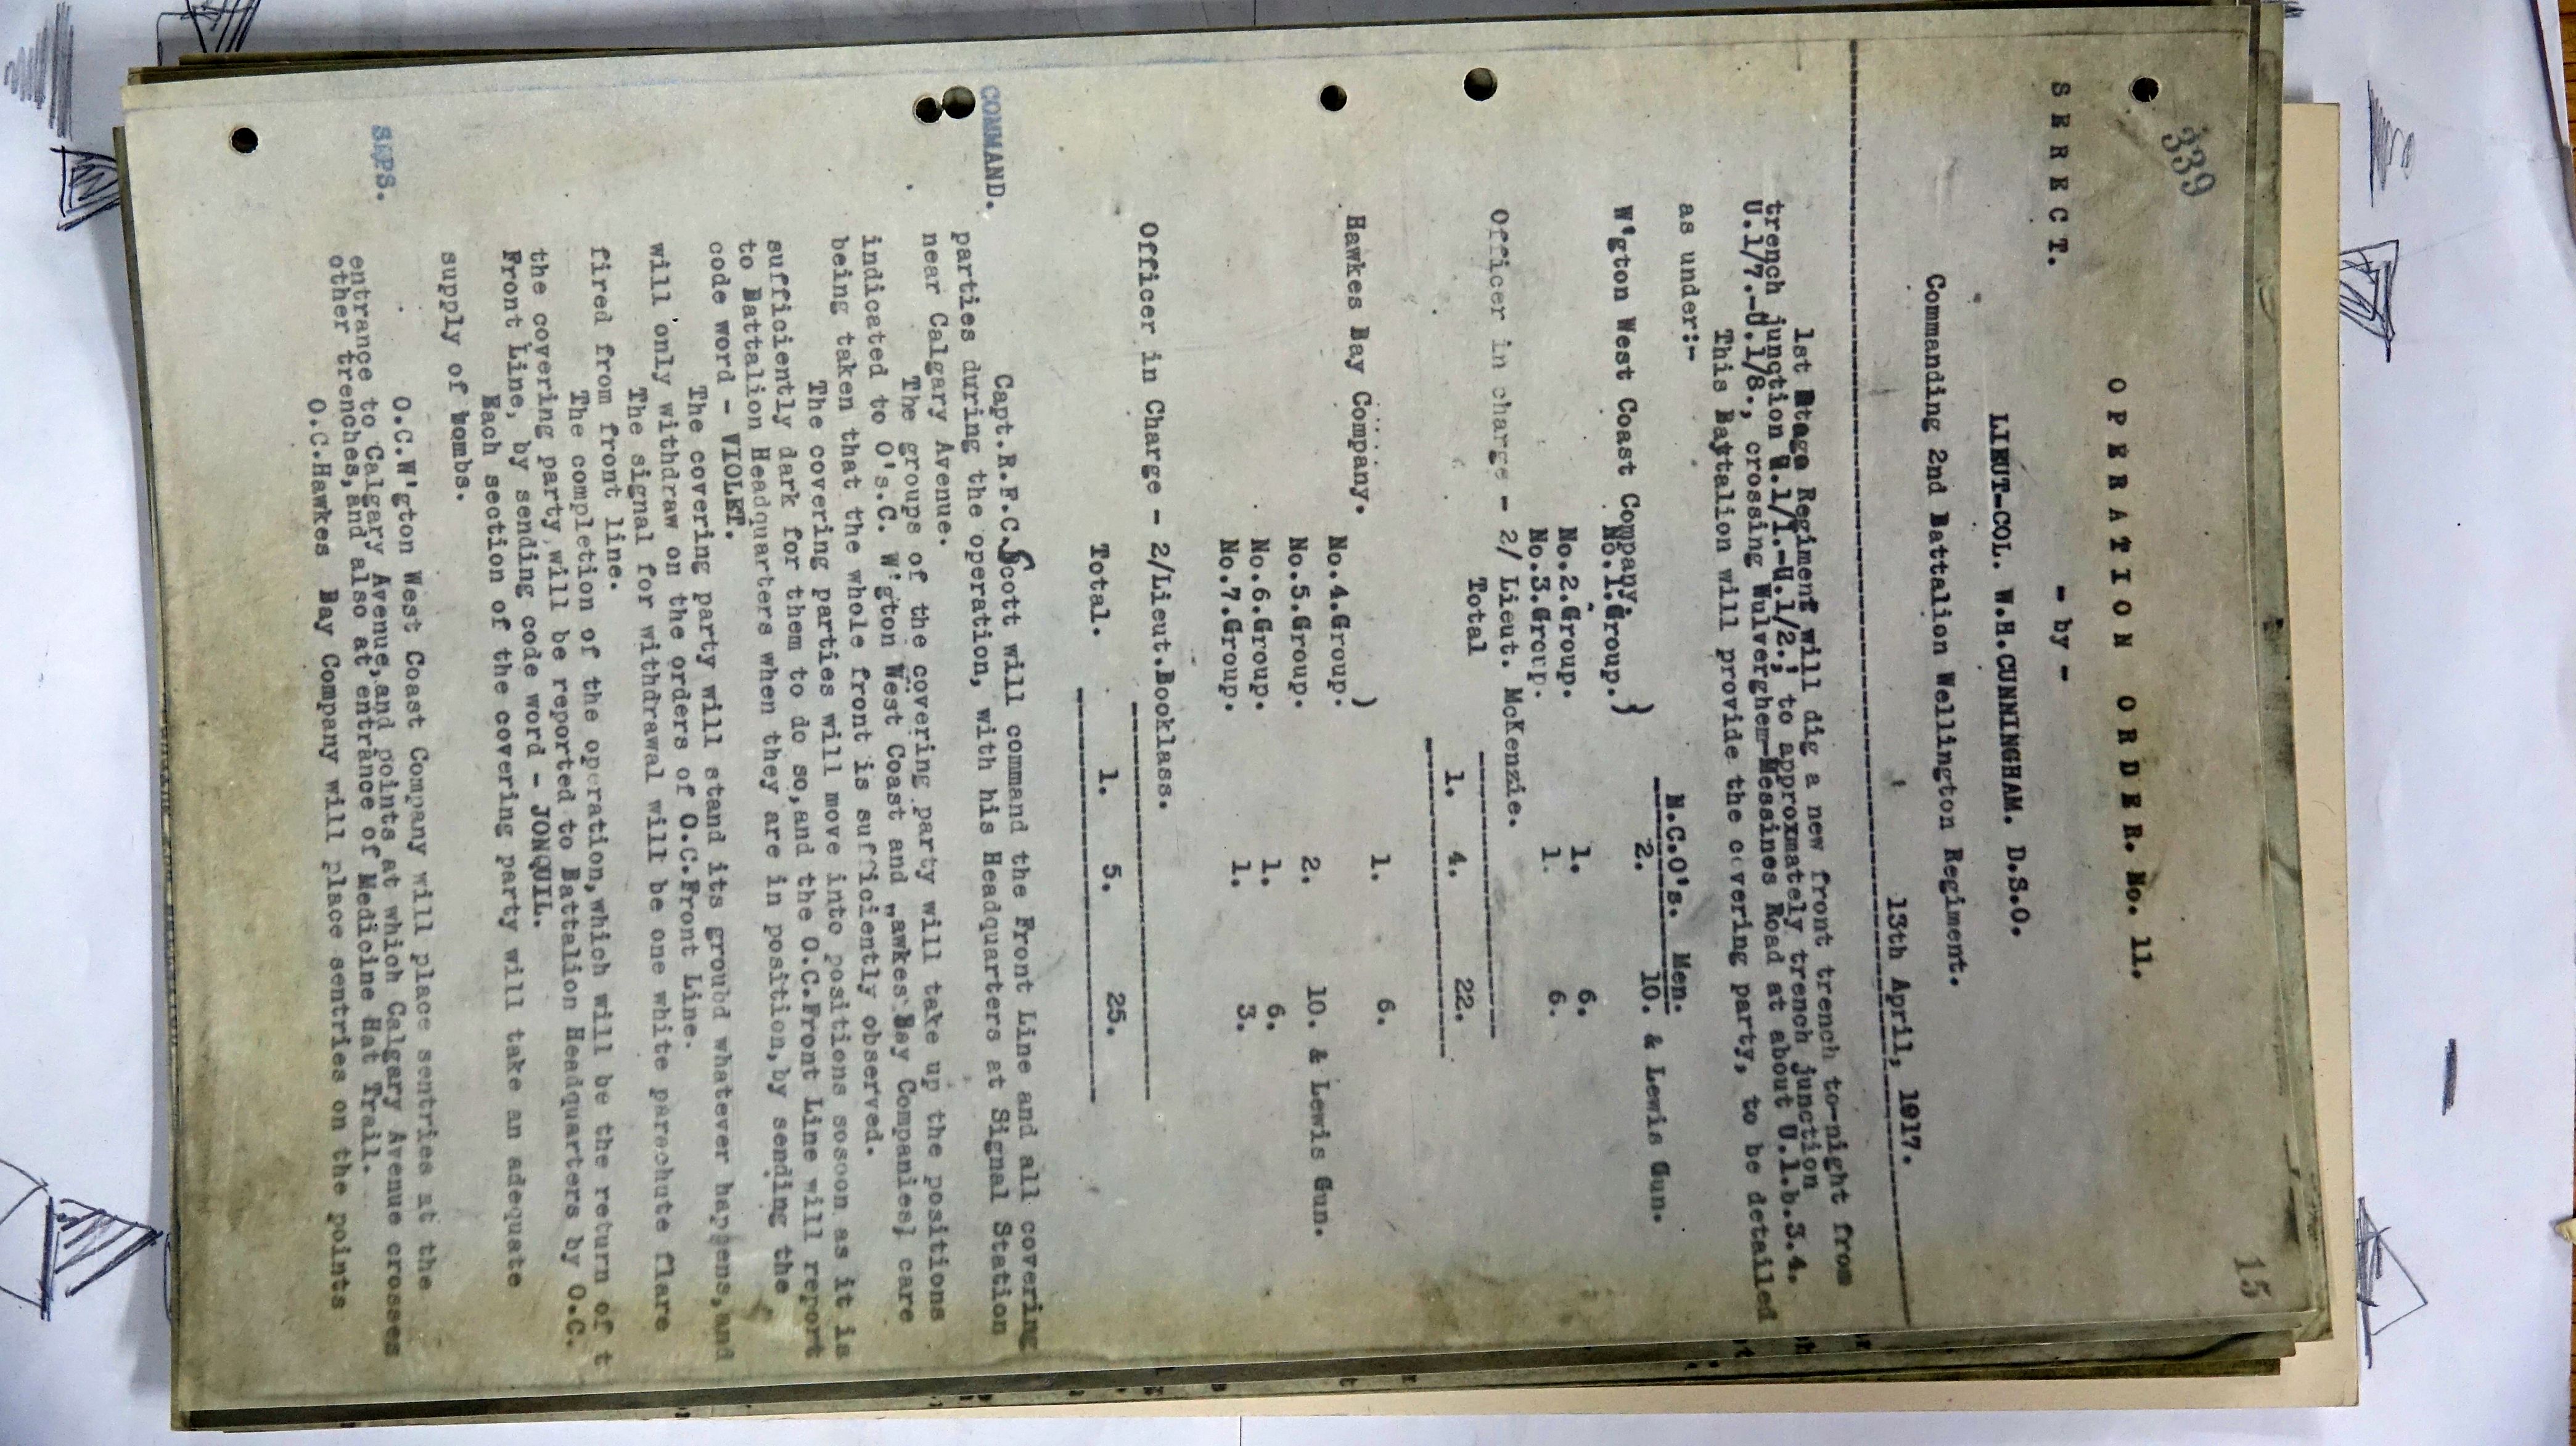 339
15
OPERATION ORDER. No. 11.
- by -
SERECT.
LIEUT-COL. W.H.CUNNINGHAM. D.S.O.
Commanding 2nd Battalion Wellington Regiment.
13th April, 1917.
1st Stage Regiment will dig a new front trench to-night from
trench junction U.1/1.-U.1/2., to approxmately trench junction
U.1/7.-U.1/8., crossing Wulverghem-Messines Road at about U.1.b.3.4.
This Battalion will provide the covering party, to be detailed
as under:-
N.C.O's. Men.
W'gton West Coast Company. No.1.Group.) 2. 10. & Lewis Gun.
No.2.Group. 1. 6.
No.3.Group. 1. 6.
Officer in charge - 2/ Lieut. McKenzie.
Total 1. 4. 22.
Hawkes Bay Company. No.4.Group. ) 1. 6.
No.5.Group. 2. 10. & Lewis Gun.
No.6.Group. 1. 6.
No.7.Group. 1. 3.
Officer in Charge - 2/Lieut.Booklass.
Total. 1. 5. 25.
COMMAND.
Capt.R.F.C.Scott will command the Front Line and all covering
parties during the operation, with his Headquarters at Signal Station
near Calgary Avenue.
The groups of the covering party will take up the positions
indicated to O's.C. W'gton West Coast and "awkes Bay Companies) care
being taken that the whole front is sufficiently observed.
The covering parties will move into positions sosoon as it is
sufficiently dark for them to do so,and the O.C.Front Line will report
to Battalion Headquarters when they are in position,by sending the
code word - VIOLET.
The covering party will stand its groubd whatever happens,and
will only withdraw on the orders of O.C.Front Line.
The signal for withdrawal will be one white parachute flare
fired from front line.
The completion of the operation,which will be the return of t
the covering party,will be reported to Battalion Headquarters by O.C.
Front Line, by sending code word - JONQUIL.
Each section of the covering party will take an adequate
supply of bombs.
SAPS.
O.C.W'gton West Coast Company will place sentries at the
entrance to Calgary Avenue,and points at which Calgary Avenue crosses
other trenches,and also at entrance of Medicine Hat Trail.
O.C.Hawkes Bay Company will place sentries on the points